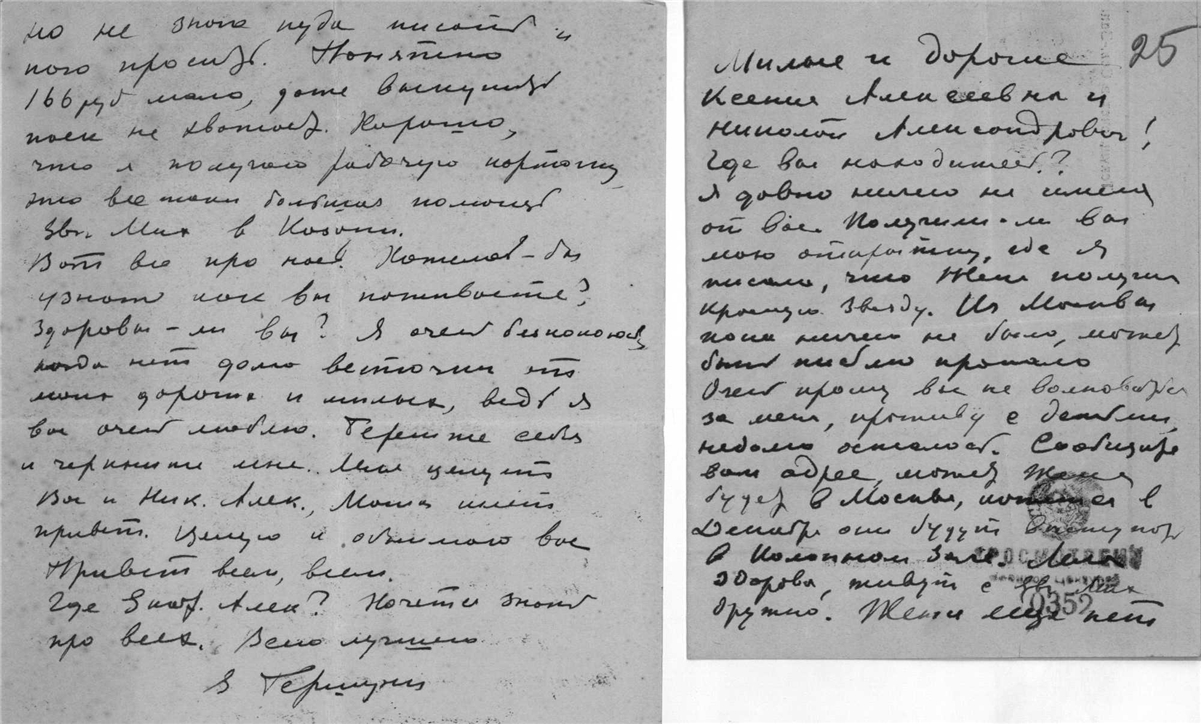 но не знаю куда писать и
кого просить. Понятно
166 руб мало, даже выкупить
паек не хватает. Хорошо,
что я получаю рабочую карточку
это все таки большая помощь
Евг. Мих в Казани.
Вот все про нас. Хотелось-бы
узнать как вы поживаете?
Здоровы-ли вы? Я очень беспокоюсь,
когда нет долго весточки от
моих дорогих и милых, ведь я
вас очень люблю. Берегите себя
и черкните мне. целует
Вас и Ник. Алек., шлет
привет. Целую и обнимаю вас
Привет всем, всем.
Где Алек? Хочется знать
про всех. Всего лучшего
В Гершуни
25
Милые и дорогие
Ксения Алексеевна и
Николай Александрович!
Где вы находитесь?
Я давно ничего не имела
от вас. Получили-ли вы
мою открытку, где я
писала, что Женя получил
Красную Звезду. Из Москвы
пока ничего не было, может
быть письмо пропало
Очень прошу вас не волноваться
за меня, проживу с детьми,
недолго осталось. Сообщите
ваш адрес, может Женя
будет в Москве, в
Декабре они будут выступать
в Колонном Зале.
здорова, живут с Евг. Мих
дружно. Жени еще нет
ПРОСМОТРЕНО
0352